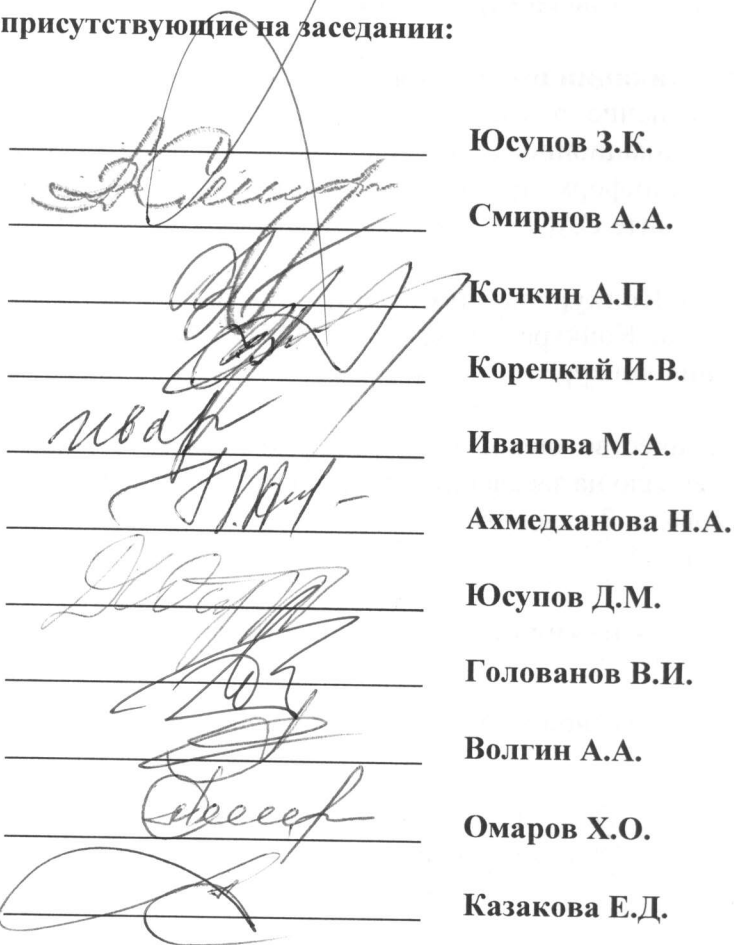 присутствующие на заседании:
Юсупов З.К.
Смирнов А.А.
Кочкин А.П.
Корецкий И.В.
Иванова М.А.
Ахмедханова Н.А.
Юсупов Д.М.
Голованов В.И.
Волгин А.А.
Омаров Х.О.
Казакова Е.Д.